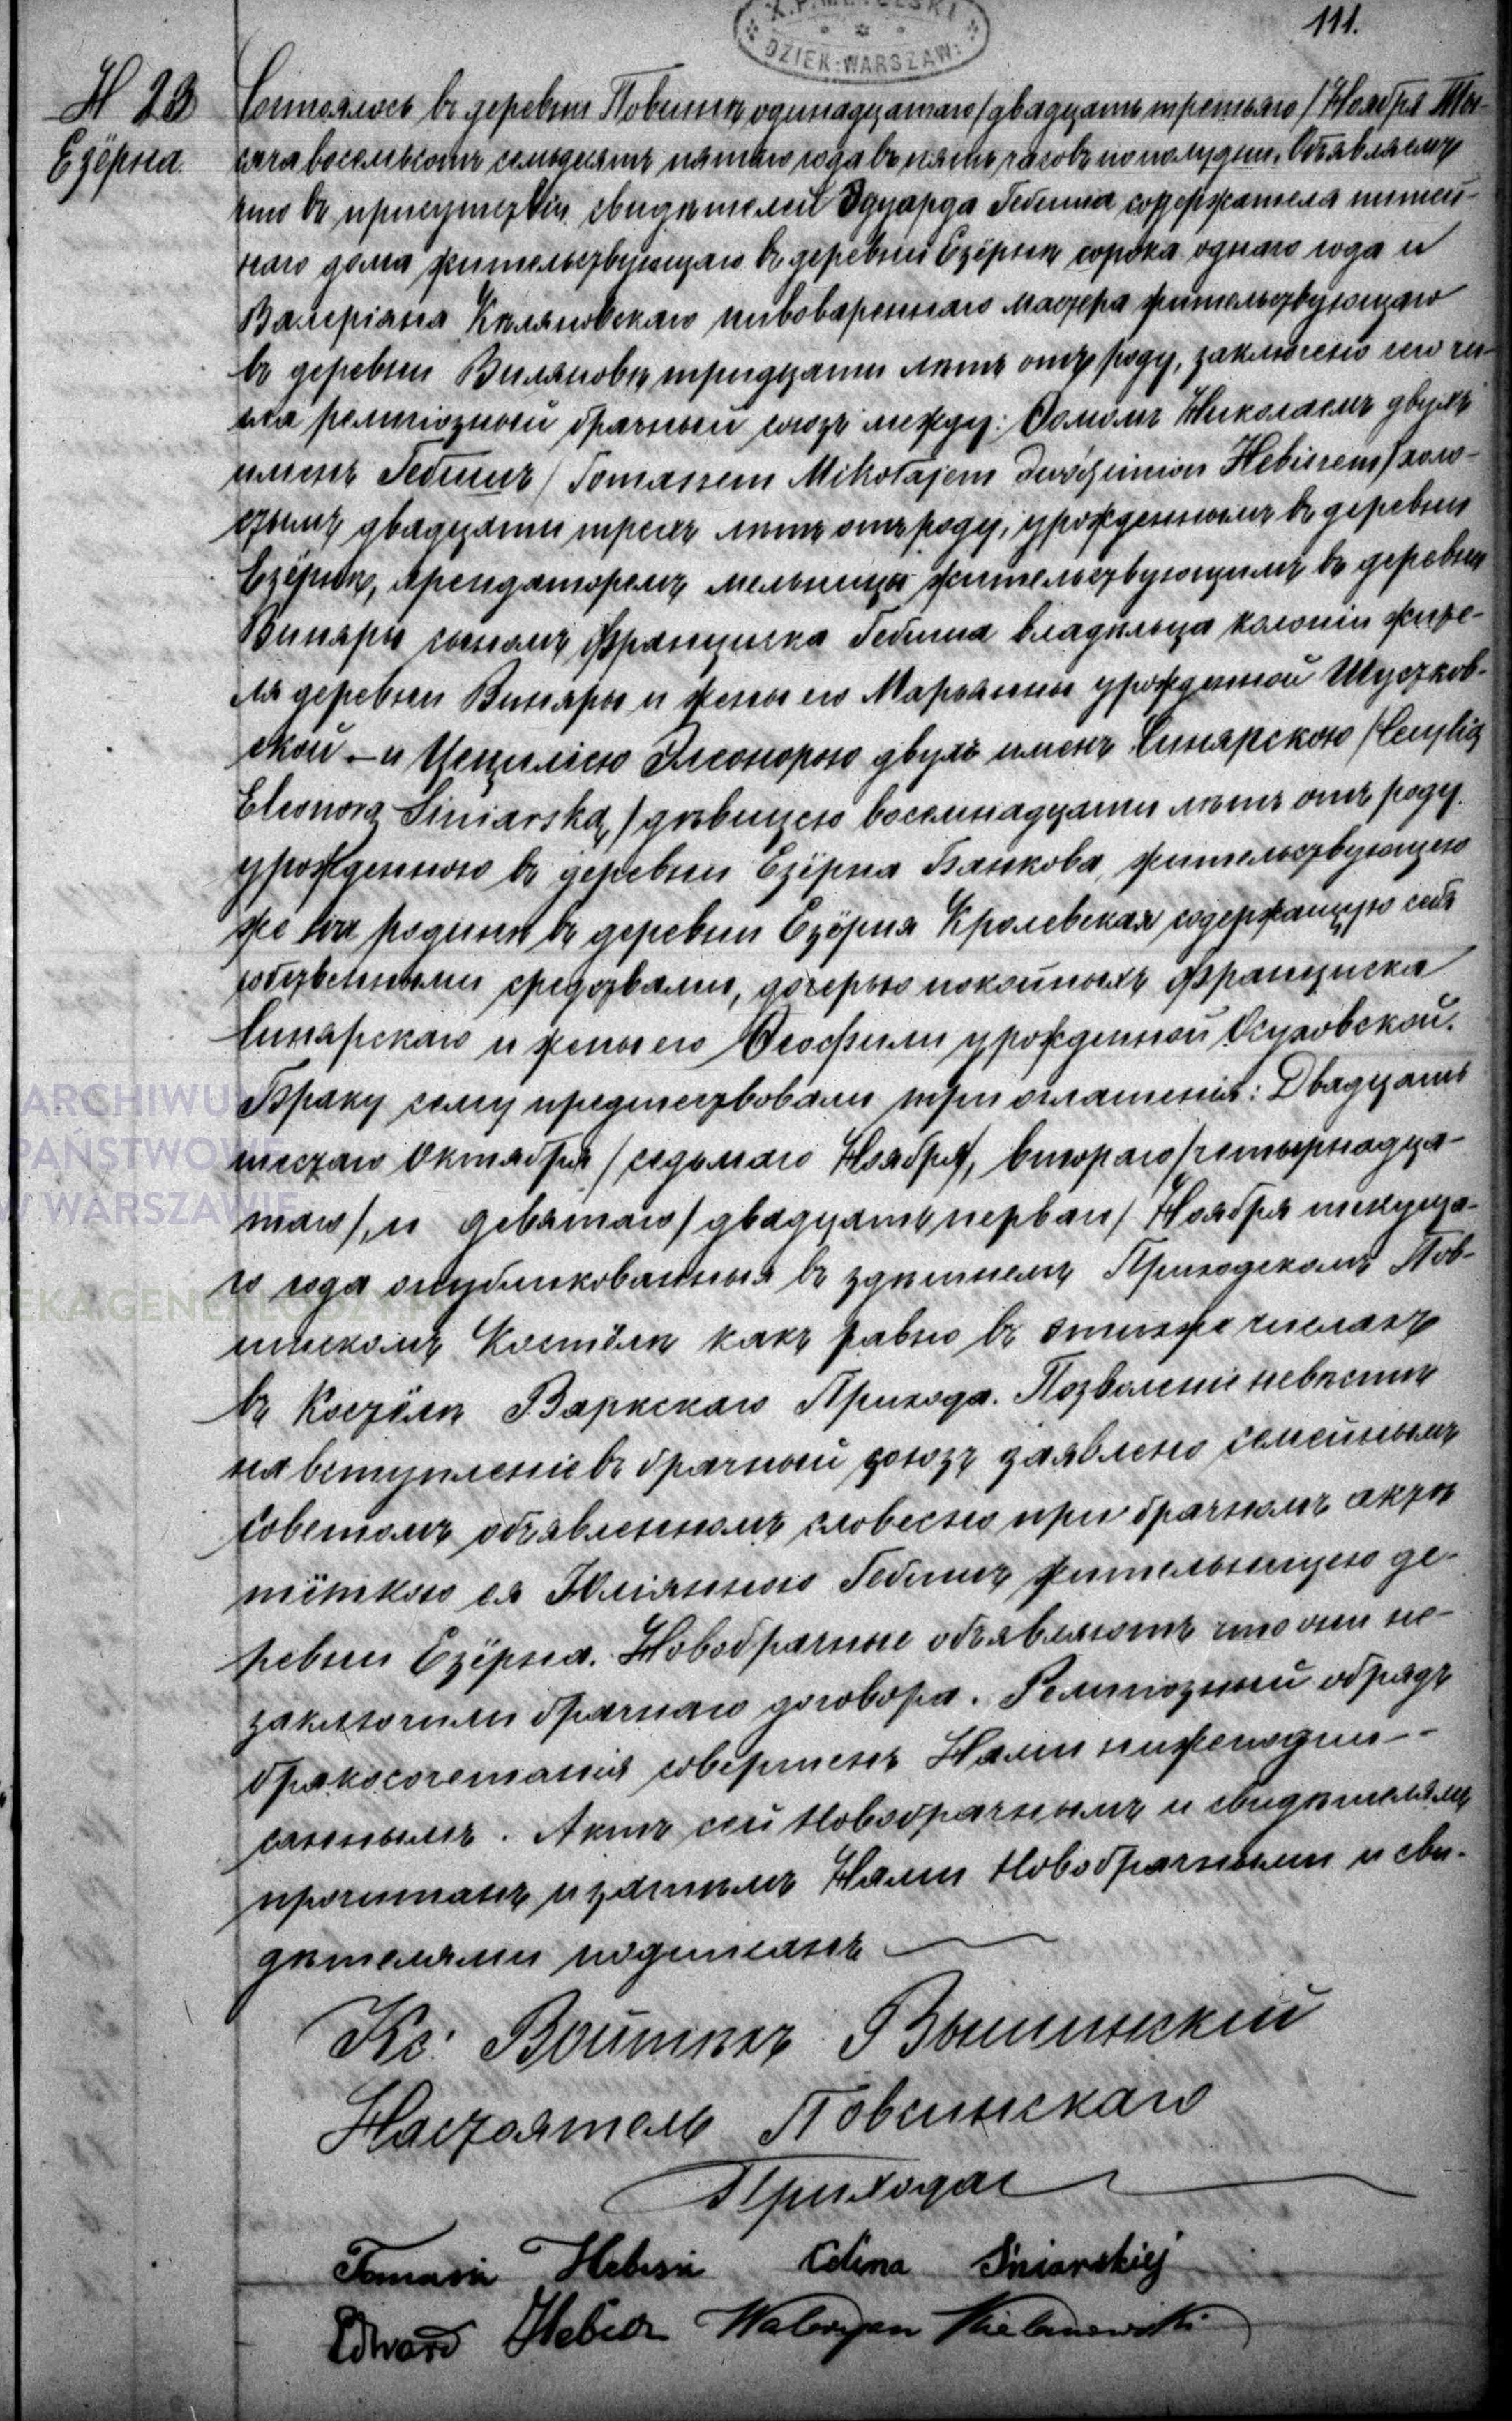 111.
X.P. METZLSKI
DZIEK-WARSZAW:
N 23
Езёрна.
Состоялось въ деревни Повсинѣ одинадцатаго /двадцать третьяго/ Ноября Ты-
сяча восемьсотъ семьдесятъ пятаго года въ пять часовъ по полудни. Объявляемъ
что въ присутствіи свидѣтелей Эдуарда Гебиша содержателя питей-
наго дома жительствующаго въ деревни Езёрнѣ сорока одного года и
Валеріана Кѣляновскаго пивовареннаго мастера жительствующаго
въ деревни Виляновѣ тридцати лѣтъ отъ роду, заключено сего чи-
сла религіозный брачный союзъ между: Ѳомомъ Николаемъ двухъ
именъ Гебишъ /Tomaszem Mikołajem dwóch imion Hebiszem/ холо-
стымъ двадцати трехъ лѣтъ отъ роду, урожденнымъ въ деревни
Езёрнѣ, арендаторемъ мельницы жительствующимъ въ деревни
Виняры сыномъ Францишка Гебиша владѣльца колоніи жите-
ля деревни Виняры и жены его Марьянны урожденной Шустков-
ской – и Цецилією Элеонорою двухъ именъ Синярскою /Cecylią
Eleonorą Siniarską/ дѣвицею восемнадцати лѣтъ отъ роду.
урожденною въ деревни Езёрна Банкова, жительствующею
же при родинѣ въ деревни Езёрня Кролевская содержащую себя
собственными средствами, дочерью покойныхъ Францишка
Синярскаго и жены его Ѳеофили урожденной Осуховской.
Браку сему предшествовали три оглашенія: Двадцать
шестаго Октября /седьмаго Ноября/, втораго /четырнадца-
таго/, и девятаго /двадцать перваго/ Ноября текуща-
го года опубликованныя въ здѣшнемъ Приходскомъ Пов-
синскомъ Костёлѣ какъ равно въ этихже числахъ
въ Костёлѣ Варкскаго Прихода. Позволеніе невѣстѣ
на вступленіе въ брачный союзъ заявлено семейнымъ
советомъ объявленномъ словесно при брачномъ актѣ
тёткою ея Юліянною Гебишъ жительницею де-
ревни Езёрна. Новобрачные объявляютъ что они не
заключили брачнаго договора. Религіозный обрядъ
бракосочетанія совершенъ Нами нижеподпи-
саннымъ. Актъ сей Новобрачнымъ и свидѣтелямъ
прочитанъ и затѣмъ Нами Новобрачными и сви-
дѣтелями подписанъ
Кс: Войтѣхъ Вышинскій
Настоятель Повсинскаго
Прихода
Tomasz Hebisz Celina Siniarskiej
Edward Hebisz Waleryan Kielanowski
ARCHIWUM
PAŃSTWOWE
W WARSZAWIE